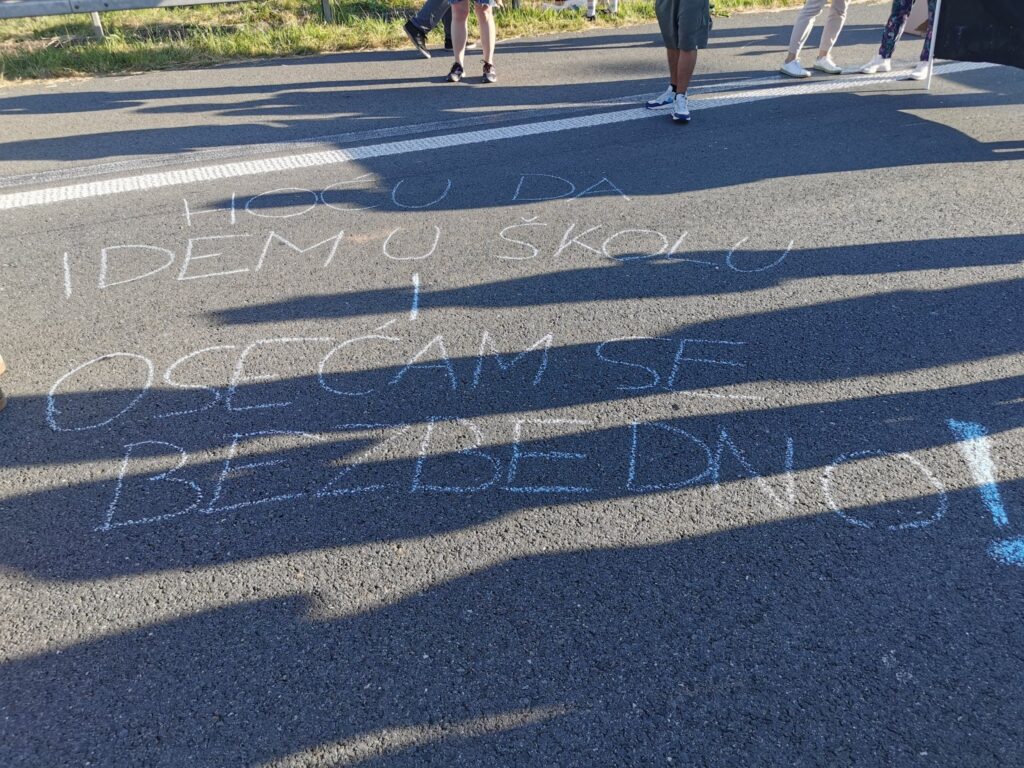 HOĆU DA
IDEM U ŠKOLU
I
OSEĆAM SE
BEZBEDNO!